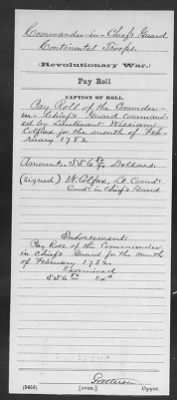 Commander-in-Chief's Guard
Continental Troops.
(Revolutionary War.)
Pay Roll
CAPTION OF ROLL.
Pay Roll of the Commander-
in-Chief's Guard command-
ed by Lieutenant William
Colfax for the month of Feb-
ruary 1782
Amount, 556 Dollars.
(Signed) W. Colfax, Lt. Comdt
Comdr in Chief's Guard
Endorsement:
Pay Roll of the Commander
in Chief's Guard for the month
of February 1782.
Examined
556
(545b) [OVER.] Copyist.